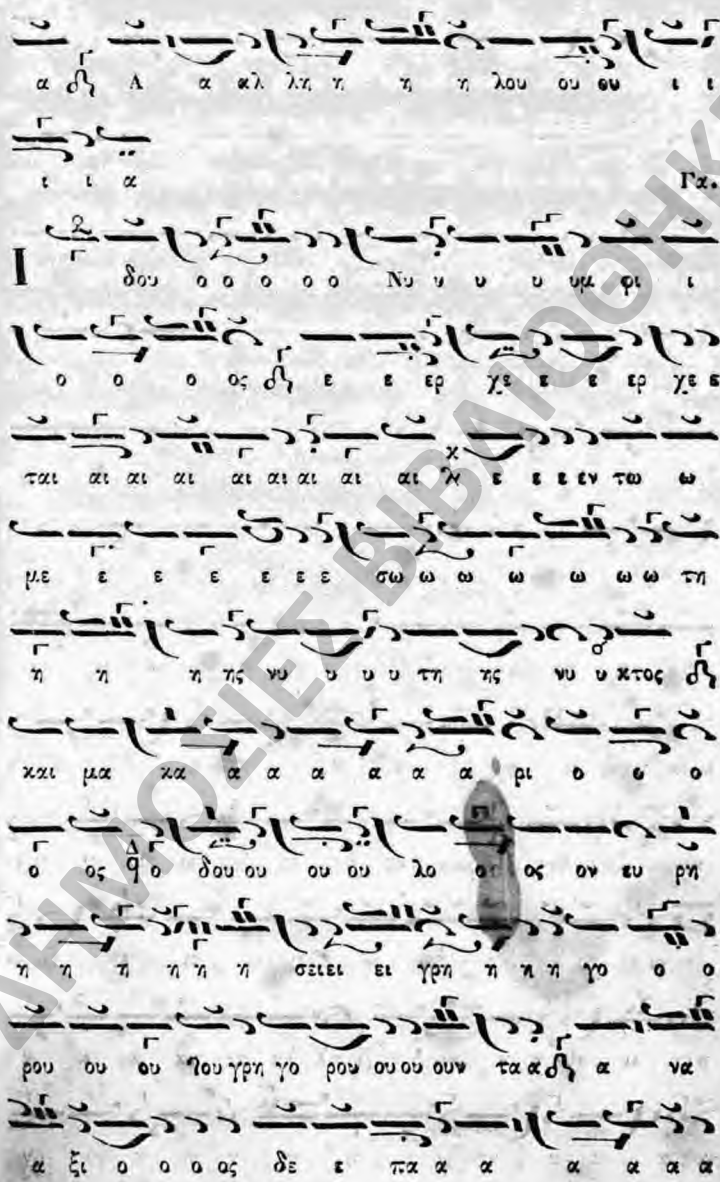 α Α α αλ λη η η η λου ου ου ι ι
ι ι α Γα.
Ι δου ο ο ο ο ο Νυ υ υ υ υμ φι ι
ο ο ο ος ε ε ερ χε ε ε ερ χε ε
ται αι αι αι αι αι αι αι αι ε ε ε εν τω ω
με ε ε ε ε ε ε σω ω ω ω ω ω ω τη
η η η ης νυ υ υ υ τη ης νυ υ κτος
και μα κα α α α α α α ρι ο ο ο
ο ος Δ ο δου ου ου ου λο ος ον ευ ρη
η η η η η η σειει ει γρη η η η γο ο ο
ρου ου ου 8ου γρη γο ρου ου ου ουν τα α α να
α ξι ο ο ο ος δε ε πα α α α α α α
ΔΗΜΟΣΙΕΣ ΒΙΒΛΙΟΘΗΚΕ